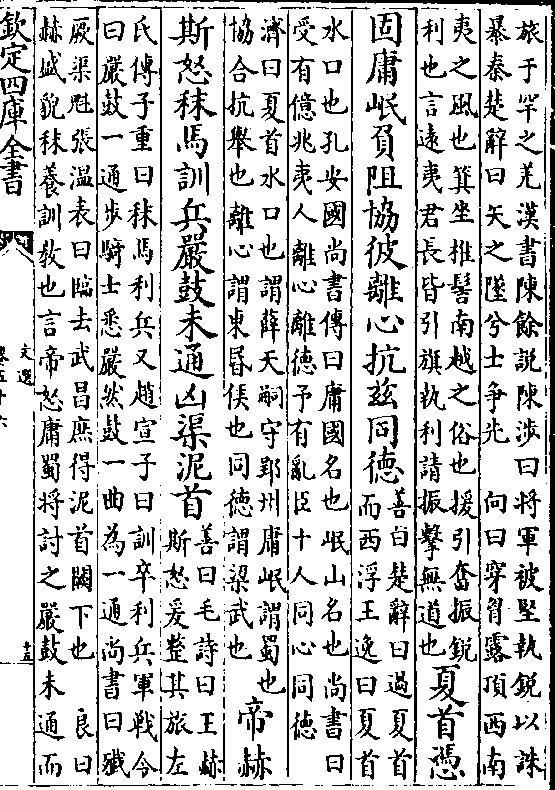 旅于罕之羌漢書陳餘說陳涉曰將軍被堅執銳以誅
暴秦楚辭曰矢之墜兮士争先　向曰穿胷露頂西南
夷之風也箕坐椎髻南越之俗也援引奮振銳
利也言遠夷君長皆引旗執利請振擊無道也夏首憑
固庸岷負阻協彼離心抗兹同德善曰楚辭曰過夏首
而西浮王逸曰夏首
水口也孔安國尚書傳曰庸國名也岷山名也尚書曰
受有億兆夷人離心離德予有亂臣十人同心同德
濟曰夏首水口也謂薛天嗣守郢州庸岷謂蜀也
協合抗舉也離心謂東昏侯也同德謂梁武也帝赫
斯怒秣馬訓兵嚴鼓未通凶渠泥首善曰毛詩曰王赫
斯怒爰整其旅左
氏傳子重曰秣馬利兵又趙宣子曰訓卒利兵軍戰令
曰嚴鼓一通步騎士悉嚴然鼓一曲為一通尚書曰殲
厥渠魁張溫表曰臨去武昌庶得泥首闕下也　良曰
赫盛貌秣養訓教也言帝怒庸蜀將討之嚴鼓未通而
欽定四庫全書
文選
卷五十六